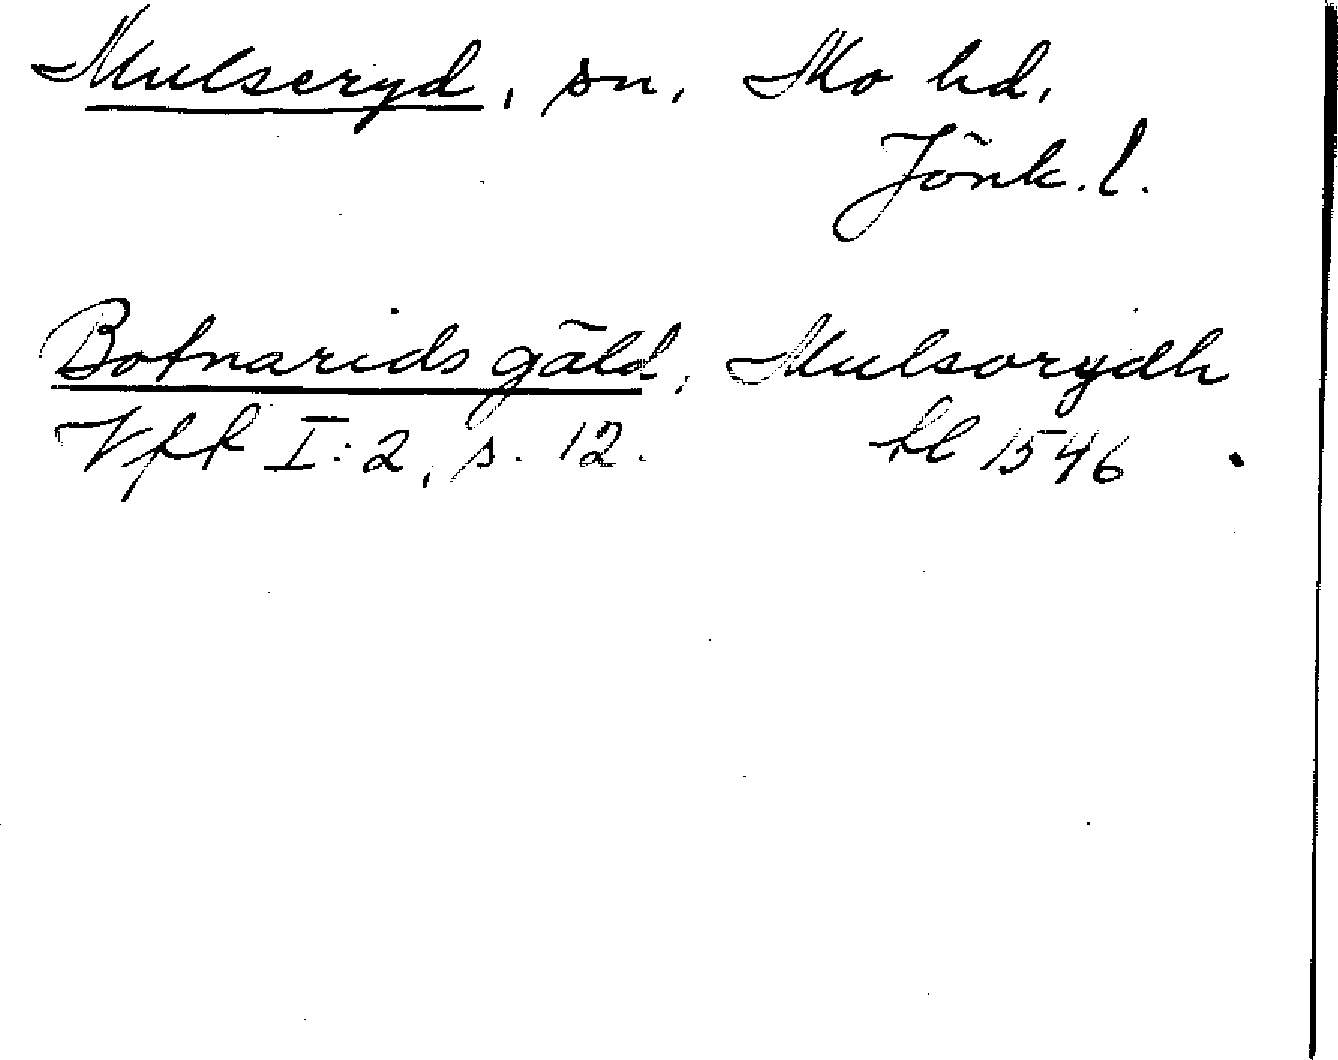 Mulseryd, sn, Mo hd,
Jönk. l.
Botnarids gäld, Mulsorydh
Vff I:2, s. 12. kl 1546